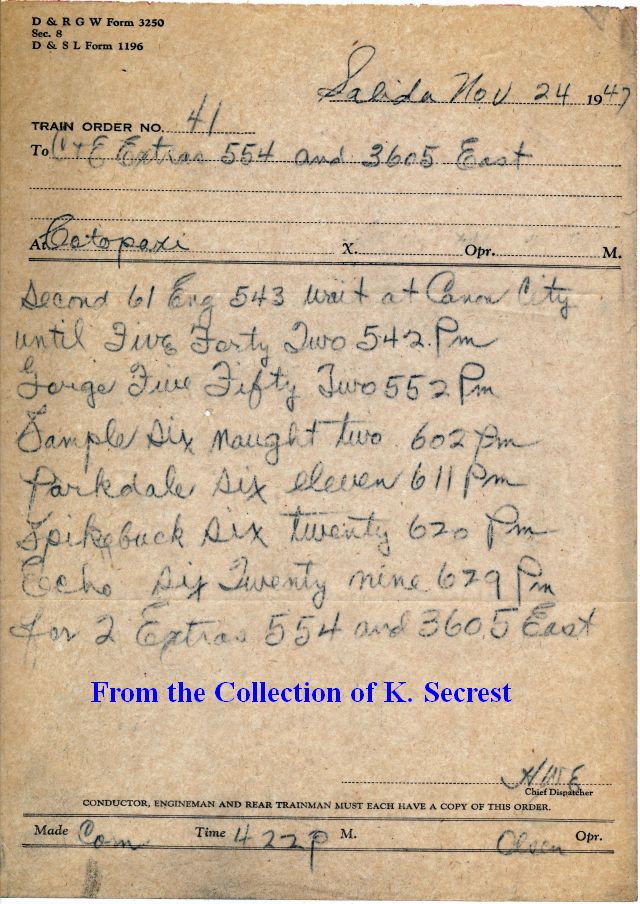 D & R G W Form 3250
Sec. 8
D & S L Form 1196
Salida Nov 24 1947
TRAIN ORDER NO. 41
To C+E Extras 554 and 3605 East
At Cotopaxi X. Opr. M.
Second 61 Eng 543 wait at Canon City
until Five Forty Two 542 Pm
Gorge Five Fifty Two 552 Pm
Sample Six naught two 602 pm
Parkdale six eleven 611 pm
Spikebuck six twenty 620 Pm
Echo six Twenty nine 629 Pm
for 2 Extras 554 and 3605 East
From the Collection of K. Secrest
Chief Dispatcher
CONDUCTOR, ENGINEMAN AND REAR TRAINMAN MUST EACH HAVE A COPY OF THIS ORDER.
Made Com Time 422 p M. Olsen Opr.